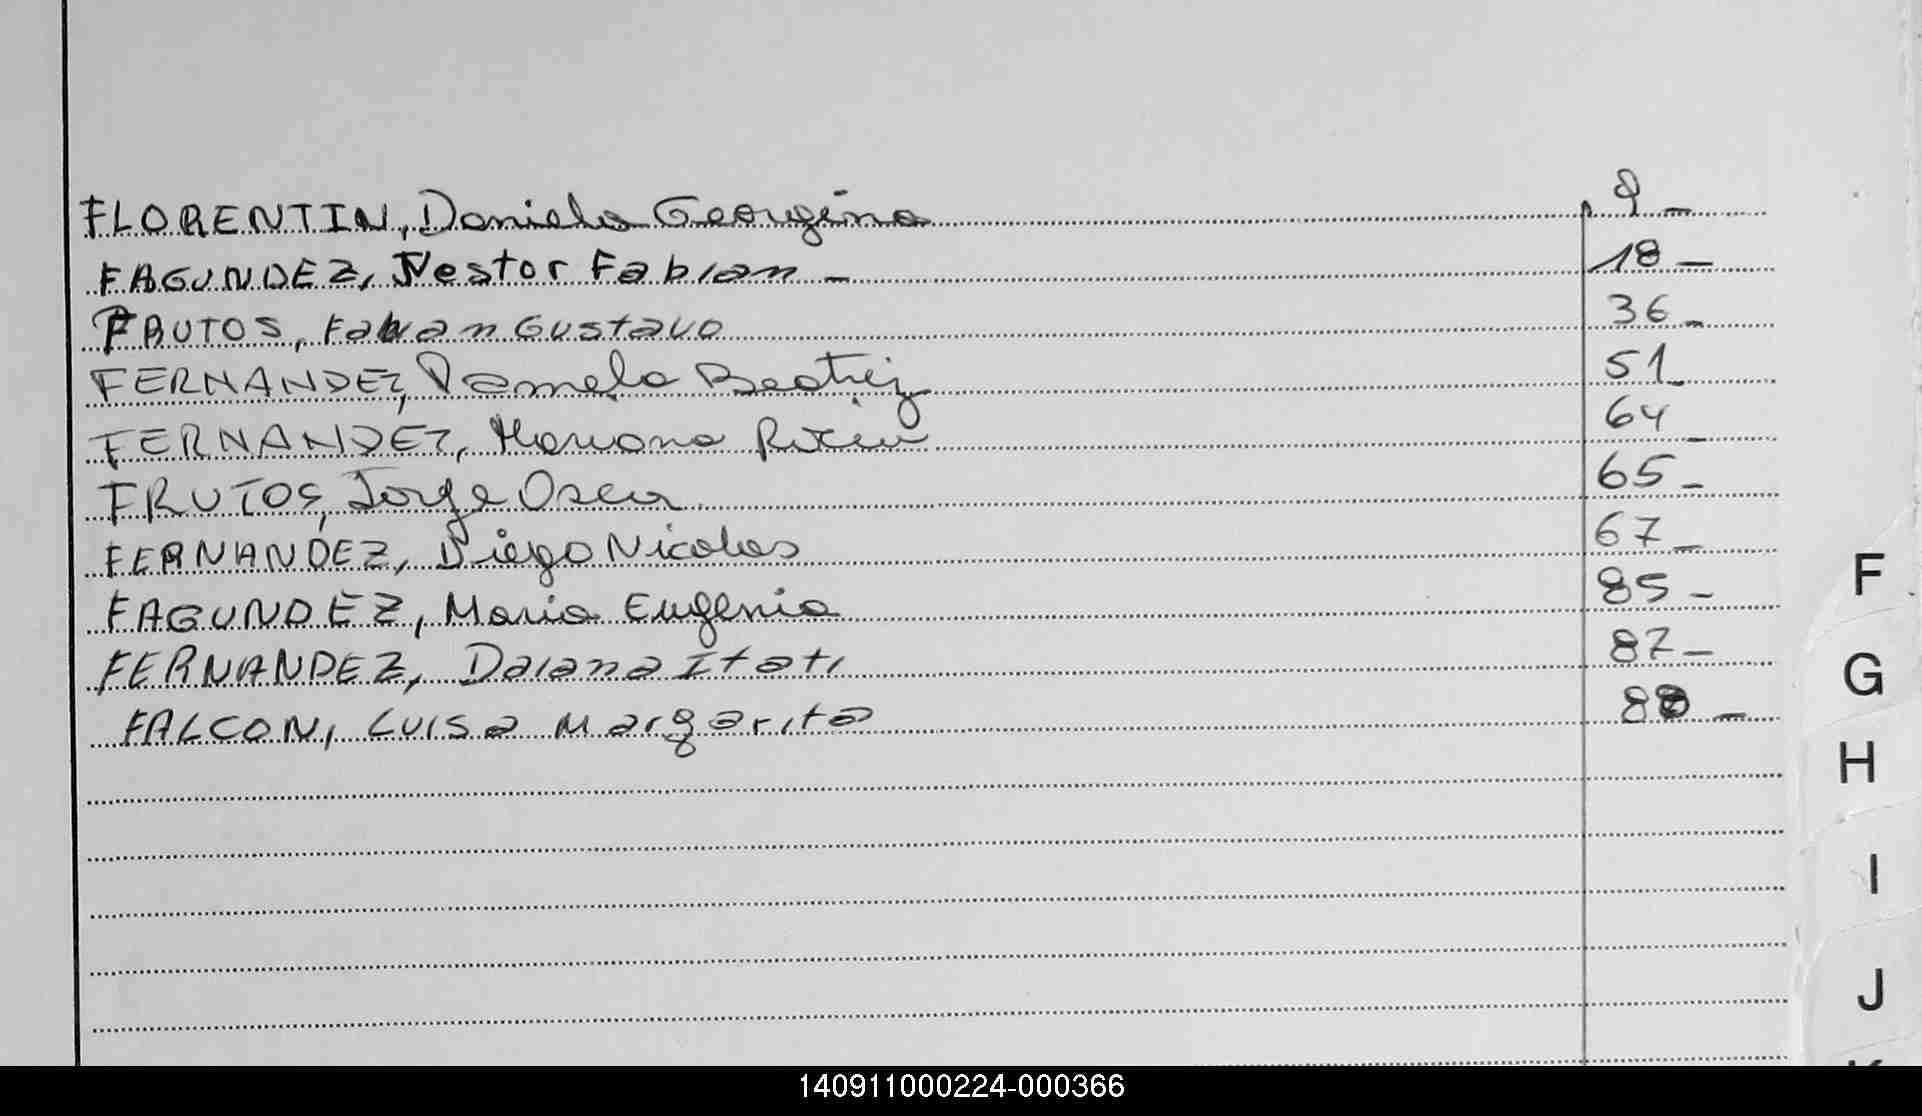 FLORENTIN, Daniela Georgina 9 -
FAGUNDEZ, Nestor Fabian - 18 -
FRUTOS, Fabian Gustavo 36 -
FERNANDEZ, Pamela Beatriz 51 -
FERNANDEZ, Mariana 64 -
FRUTOS, Jorge Oscar 65 -
FERNANDEZ, Diego Nicolas 67 -
FAGUNDEZ, Maria Eugenia 85 -
FERNANDEZ, Daiana Itati 87 -
FALCON, Luisa Margarita -
F
G
H
I
J
140911000224-000366